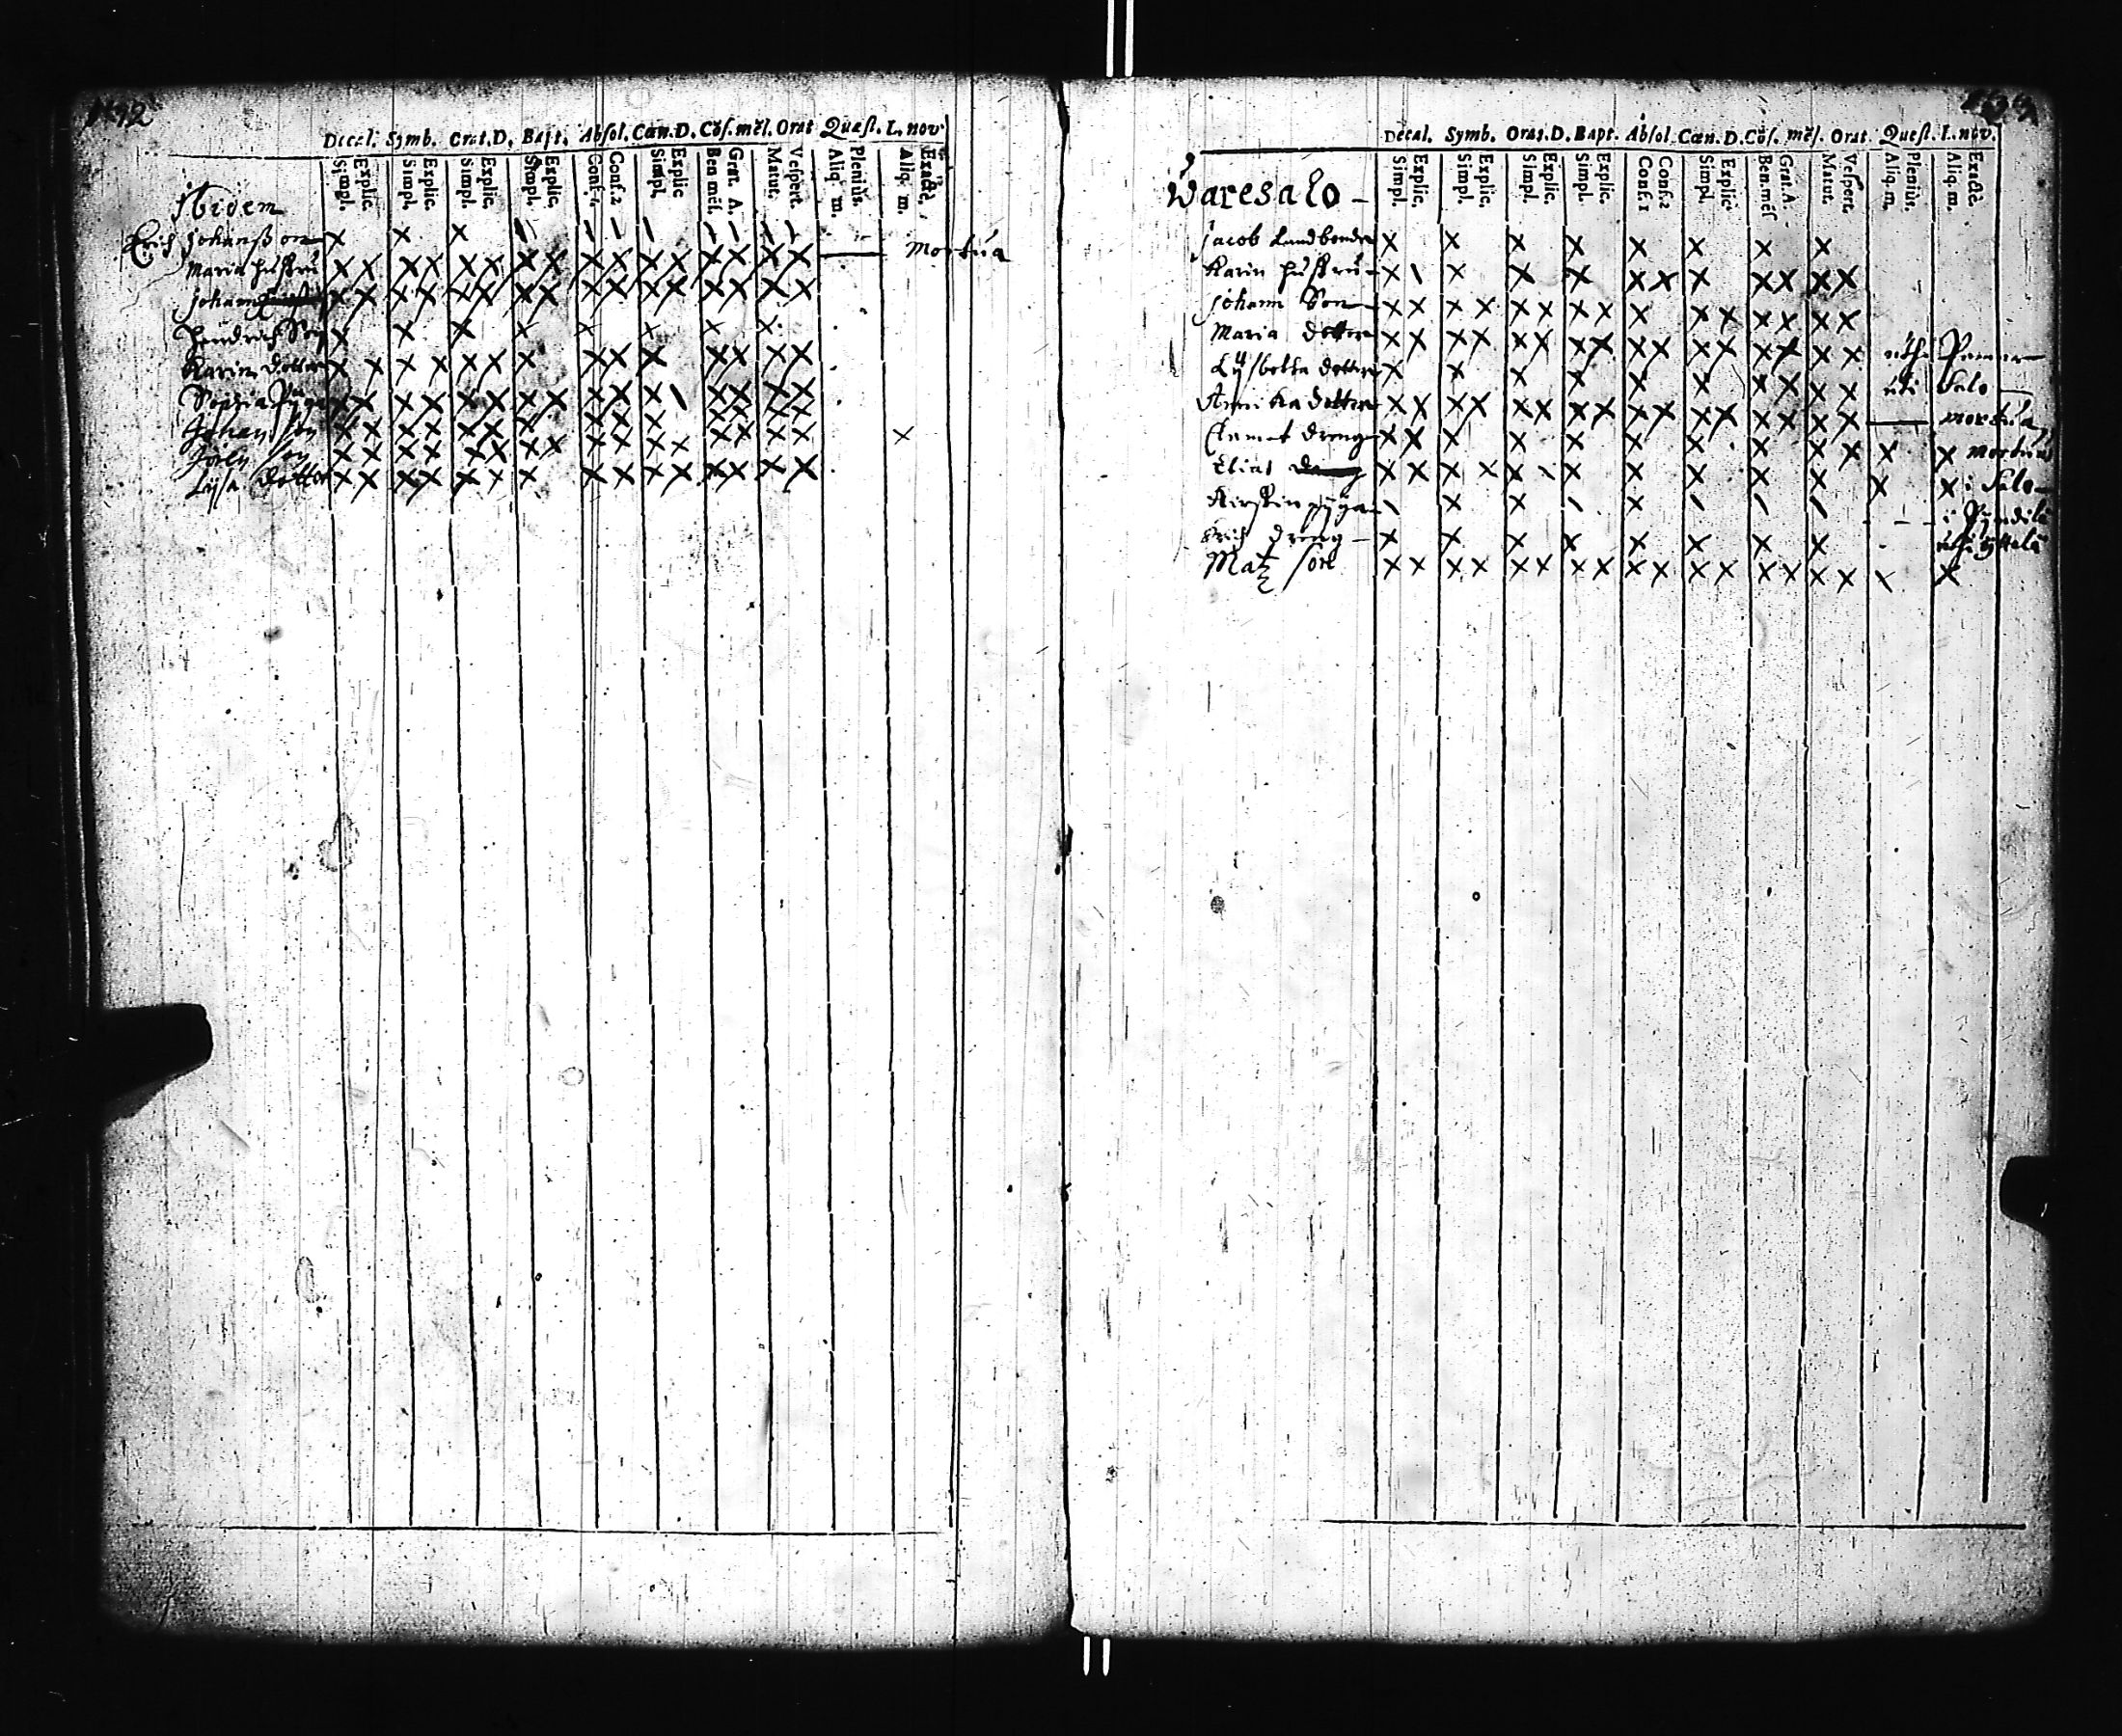 Decal. Symb. Orat. D. Bapt. Absol. Cœn. D. Cōf. mēs. Orat Quæst. L. nov
Simpl. Explic. Simpl. Explic. Simpl. Explic. Simpl. Explic. Conf. 1 Conf. 2 Simpl. Explic Ben mēs. Grat. A. Matut. Vespert. Aliq. m. Plenius. Aliq. m. Exactè.
Ibidem
Erich Johansson x x x
Maria hustru x x x x x x x x x x x x x x x x — Mortua
Johan x x x x x x x x x x x x x x x x
Hendrich Son x x x x x x x x
Karin dotter x x x x x x x x x x x x x x
Sophia Pyga x x x x x x x x x x x \ x x x x
Johan son x x x x x x x x x x x x x x x x x
Jören son x x x x x x x x x x x x x x x x
Lisa dotter x x x x x x x x x x x x x x x
Decal. Symb. Orat. D. Bapt. Absol. Cœn. D. Cōs. mēs. Orat. Quest. L. nov.
Simpl. Explic. Simpl. Explic. Simpl. Explic. Simpl. Explic. Conf. 1 Conf. 2 Simpl. Explic. Ben. mēs Grat. A. Matut. Vespert. Aliq. m. Plenius. Aliq. m. Exactè.
Waresalo
Jacob Landbonde x x x x x x x x
Karin hustru x \ x x x x x x x x x x
Johan Son x x x x x x x x x x x x x x x
Maria dotter x x x x x x x x x x x x x x x x
Lijsbetta dotter x x x x x x x x x x Salo
Annika dotter x x x x x x x x x x x x x x x x — mortua
Clemet dreng x x x x x x x x x x x x mortuus
Elias x x x x x x x x x x x x i Salo
Kirstin pyga \ x x \ x \ \ \
Erich dreng x x x x x x x x
Matz son x x x x x x x x x x x x x x x x x x